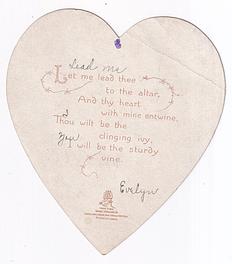 Lead me
Let me lead thee
to the altar,
And thy heart
with mine entwine,
I
Thou wilt be the
clinging ivy,
You
I will be the sturdy
vine.
Evelyn